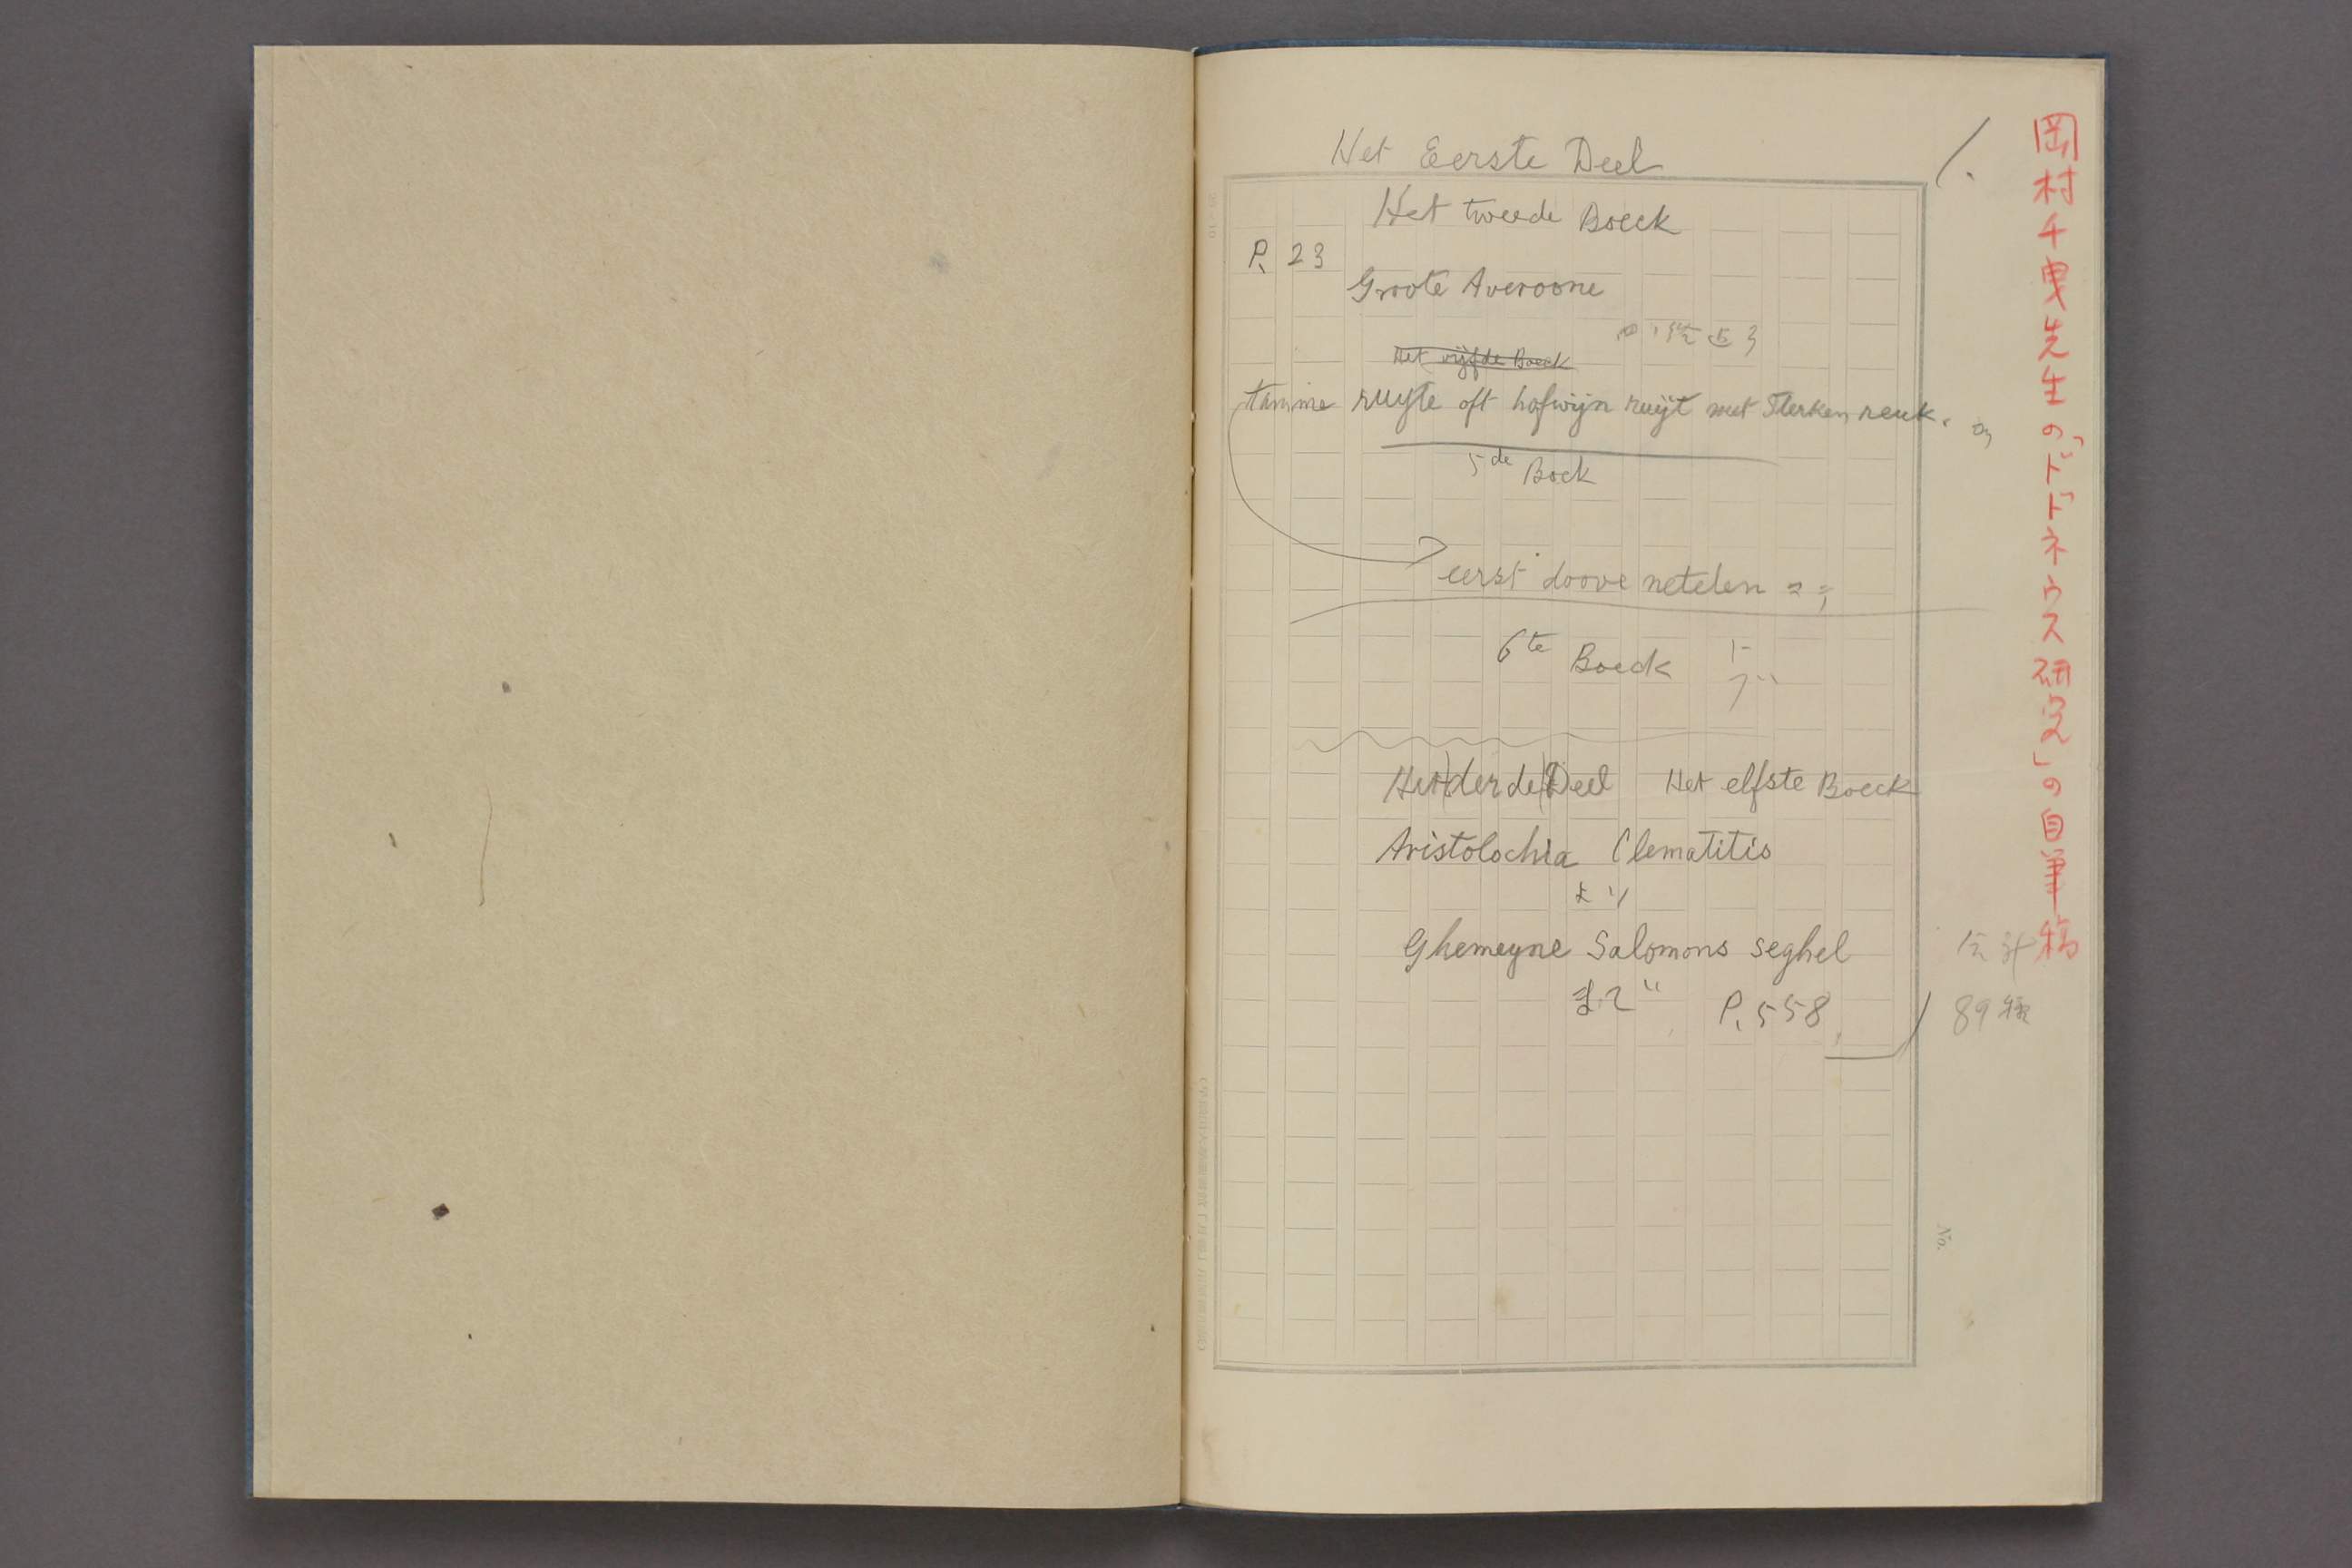 岡村千曳先生の「ドドネウス研究」の自筆稿
1.
Het Eerste Deel
Het tweede Boeck
P. 23
Groote Averoone
Het vijfde Boeck
tamme ruyte oft hofwijn ruijt met sterken reuk.
5de Bock
eerst doove netelen
6te Boeck
Het derde Deel Het elfste Boeck
Aristolochia Clematitis
より
Ghemeyne Salomons seghel
まで P. 558
合計
89種
No.